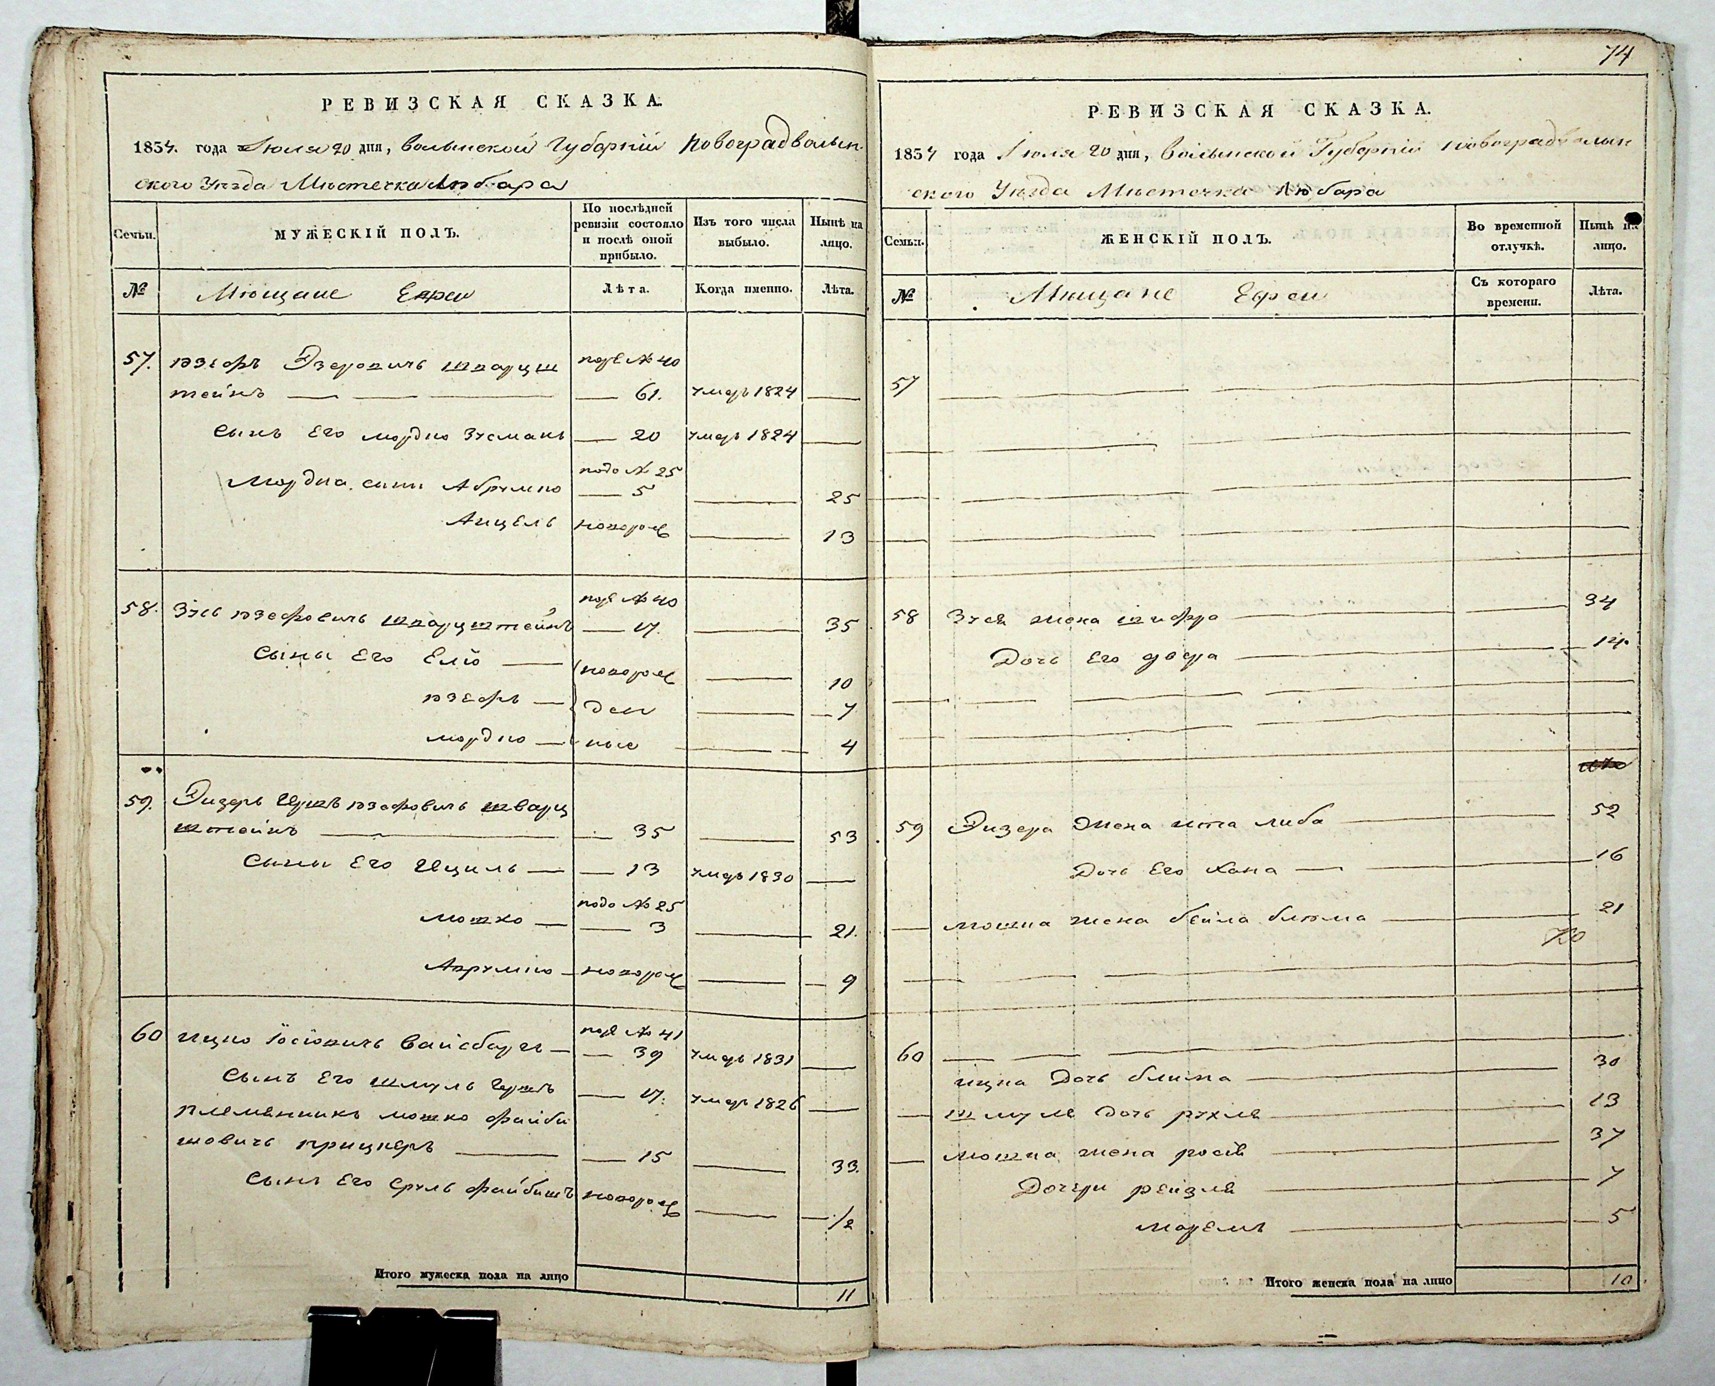 РЕВИЗСКАЯ СКАЗКА.
1834. года Июля 20 дня, Волынской Губерніи Новоградволын
ского Уѣзда Мѣстечка Любара
Семьи.
МУЖЕСКІЙ ПОЛЪ.
По послѣдней ревизіи состояло и послѣ оной прибыло.
Изъ того числа выбыло.
Нынѣ на лицо.
№
Мѣщане Евреи
Лѣта.
Когда именно.
Лѣта.
57. Юзефъ Эзеровичъ Шварцш подъ № 40
тейнъ 61. умеръ 1824
Сынъ Его Мордко Зусманъ 20 умеръ 1824
Мордка сыны Абрумко подо № 25 5 25
Анцель новорож 13
58. Зусь Юзефовичъ Шварцштейнъ подъ № 40 17. 35
Сыны Его Еліо новорож 10
Юзефъ ден 7
Мордко ные 4
59. Эизеръ Гершъ Юзефовичъ Шварц
штейнъ 35 53
Сыны Его Ициль 13 умеръ 1830
Мошко подо № 25 3 21.
Аврумко новорож 9
60 Ицко Іосіовичъ Вайсбергъ подъ № 41 39 умеръ 1831
Сынъ Его Шмуль Гершъ 17. умеръ 1826
племянникъ Мошко Файби
шовичъ 15 33.
Сынъ Его Сруль Файбишъ новорож 1/2
Итого мужеска пола на лицо 11
74
РЕВИЗСКАЯ СКАЗКА.
1834 года Июля 20 дня, Волынской Губерніи Новоградволын
ского Уѣзда Мѣстечка Любара
Семьи.
ЖЕНСКІЙ ПОЛЪ.
Во временной отлучкѣ.
Нынѣ на лицо.
№
Мѣщане Евреи
Съ котораго времени.
Лѣта.
57
58 Зуся жена Шифра 34
Дочь Его Двера 14.
59 Эизера Жена Ита Либа 52
Дочь Его Хана 16
Мошка жена Бейла Блюма 21
60
Ицка Дочь Блима 30
Шмуля Дочь Рухля 13
Мошка жена Росія 37
Дочери Рейзля 7
Маремъ 5
Итого женска пола на лицо 10